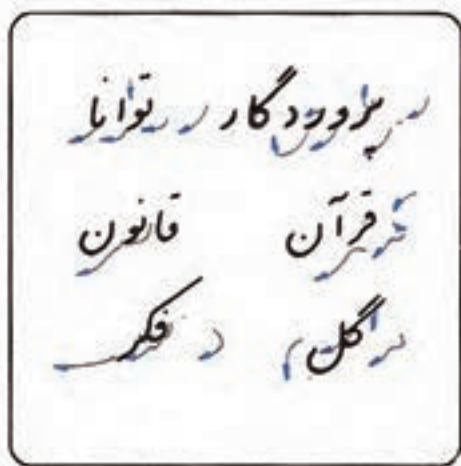 پروردگار توانا
قرآن قانون
گل فکر